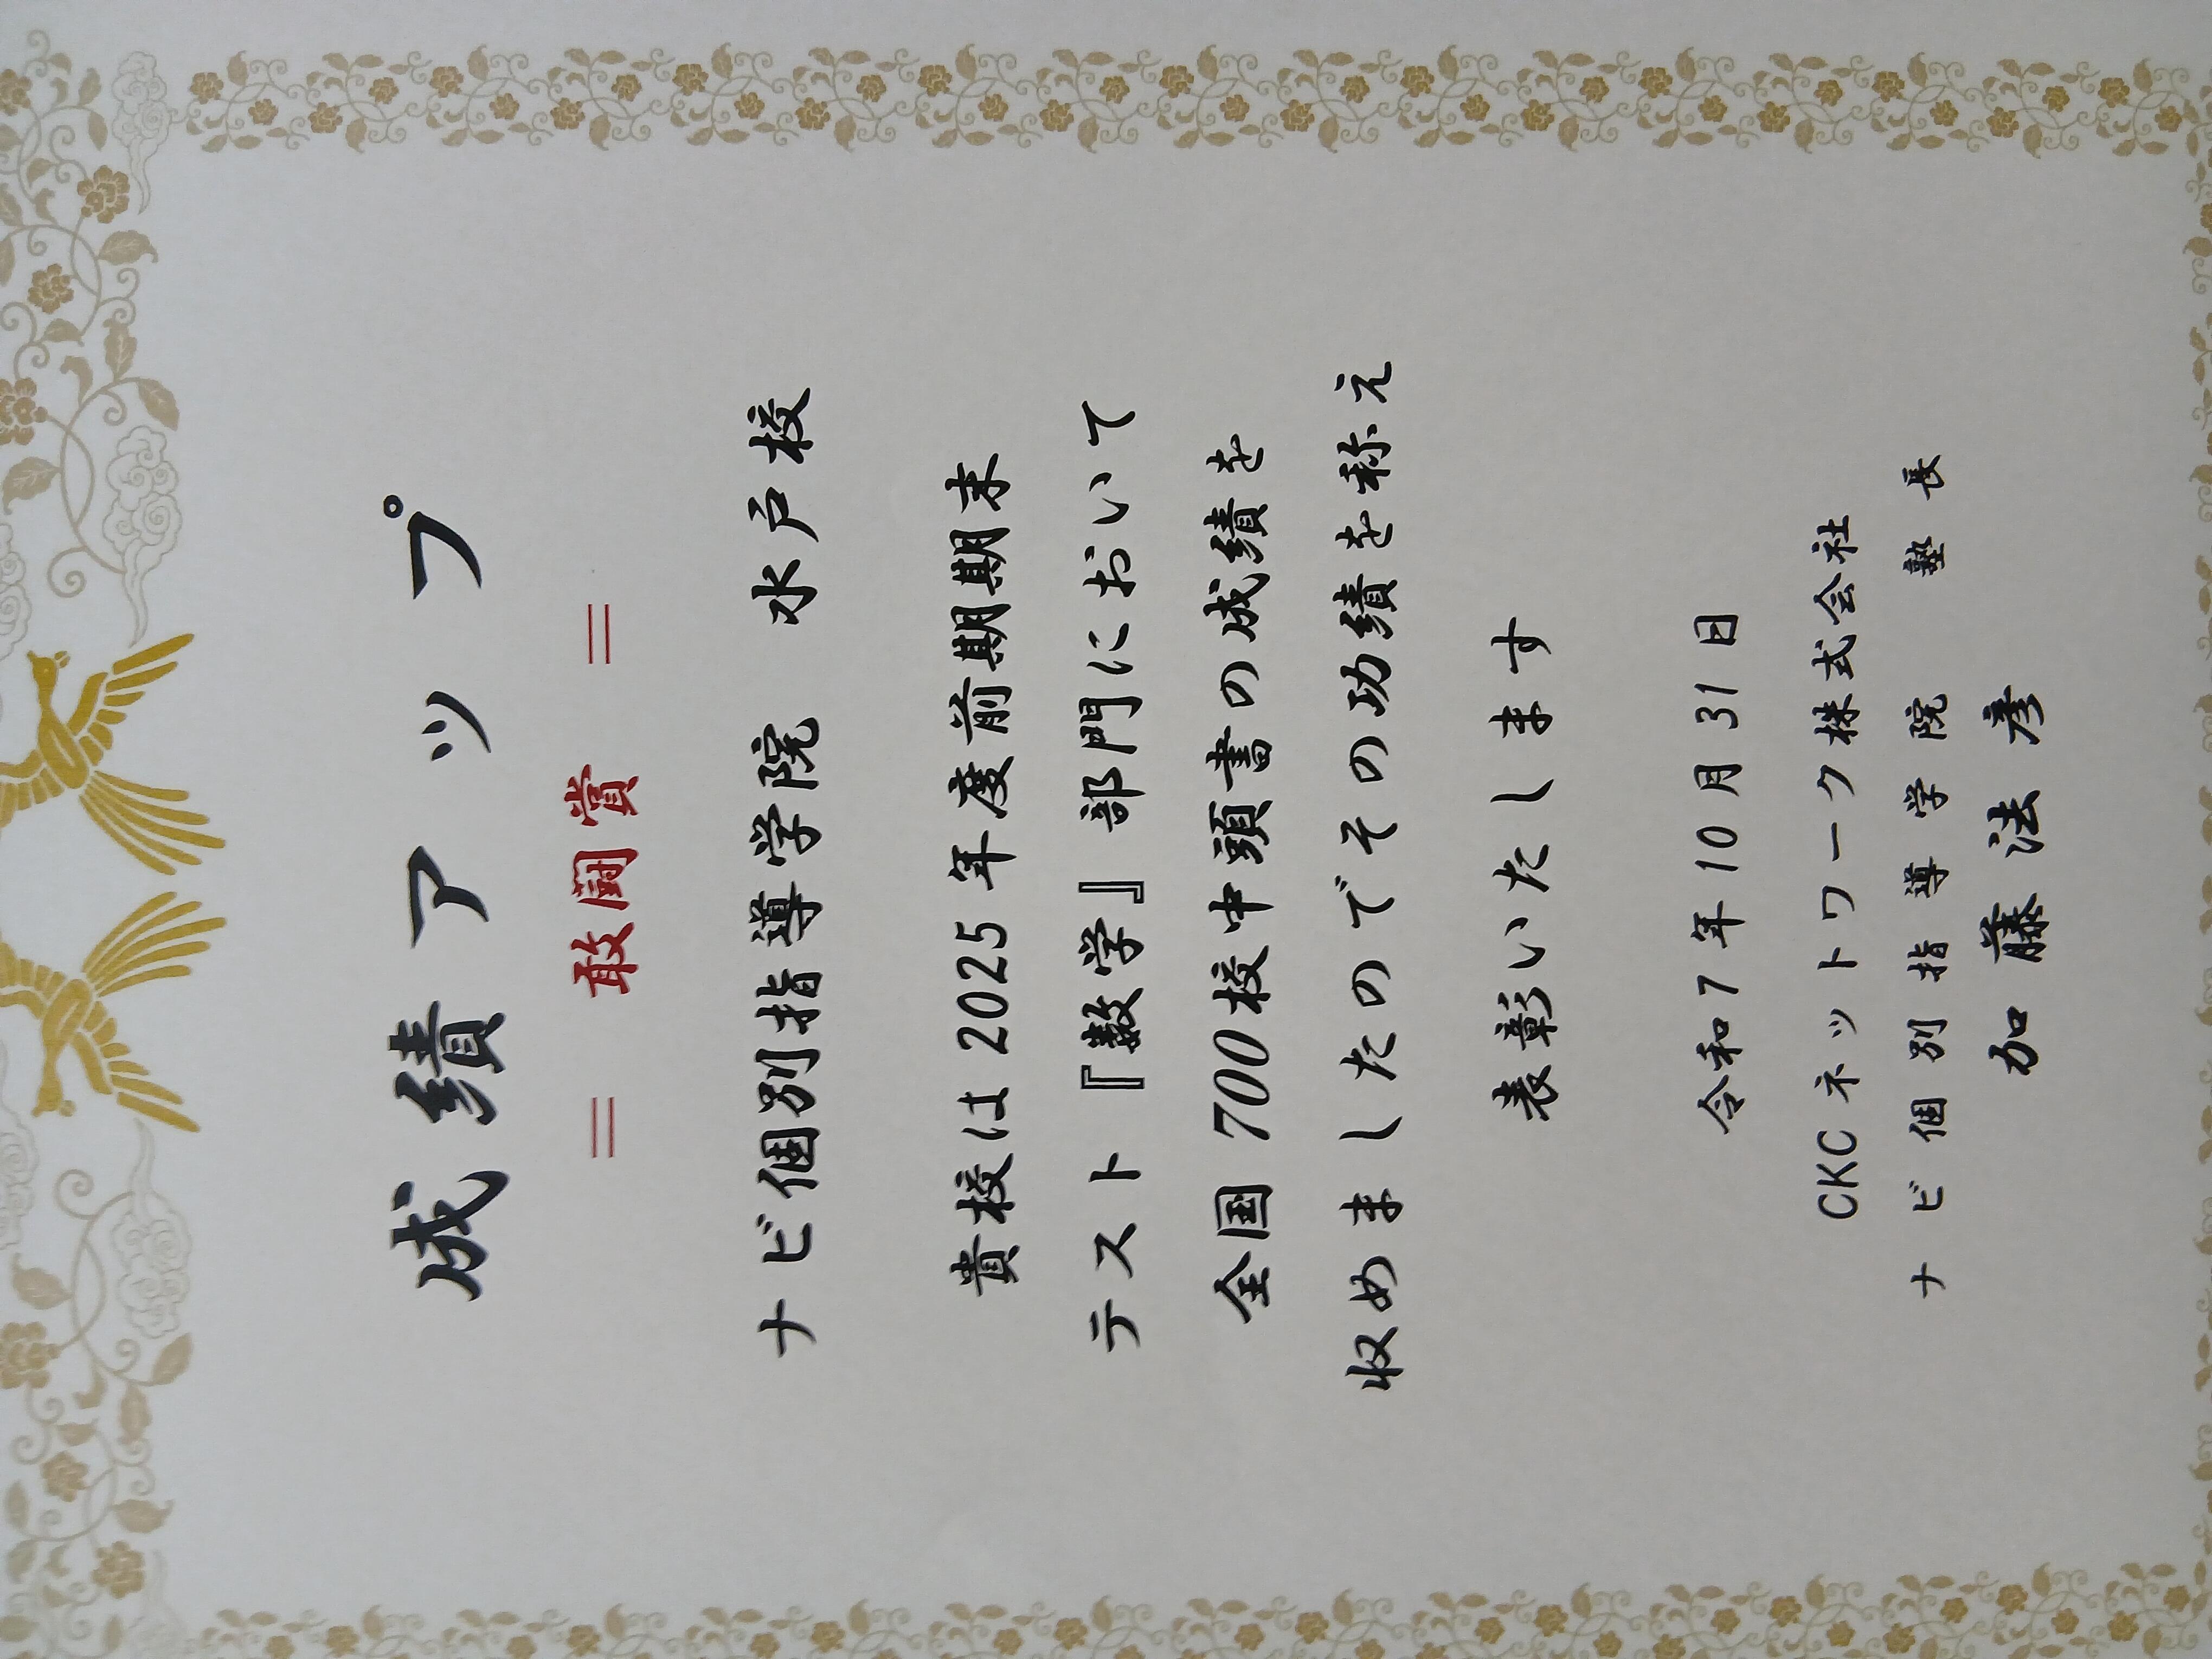 成績アップ
＝ 敢闘賞 ＝
ナビ個別指導学院 水戸校
貴校は2025年度前期期末
テスト『数学』部門において
全国700校中頭書の成績を
収めましたのでその功績を称え
表彰いたします
令和7年10月31日
CKCネットワーク株式会社
ナビ個別指導学院 塾長
加藤法彦